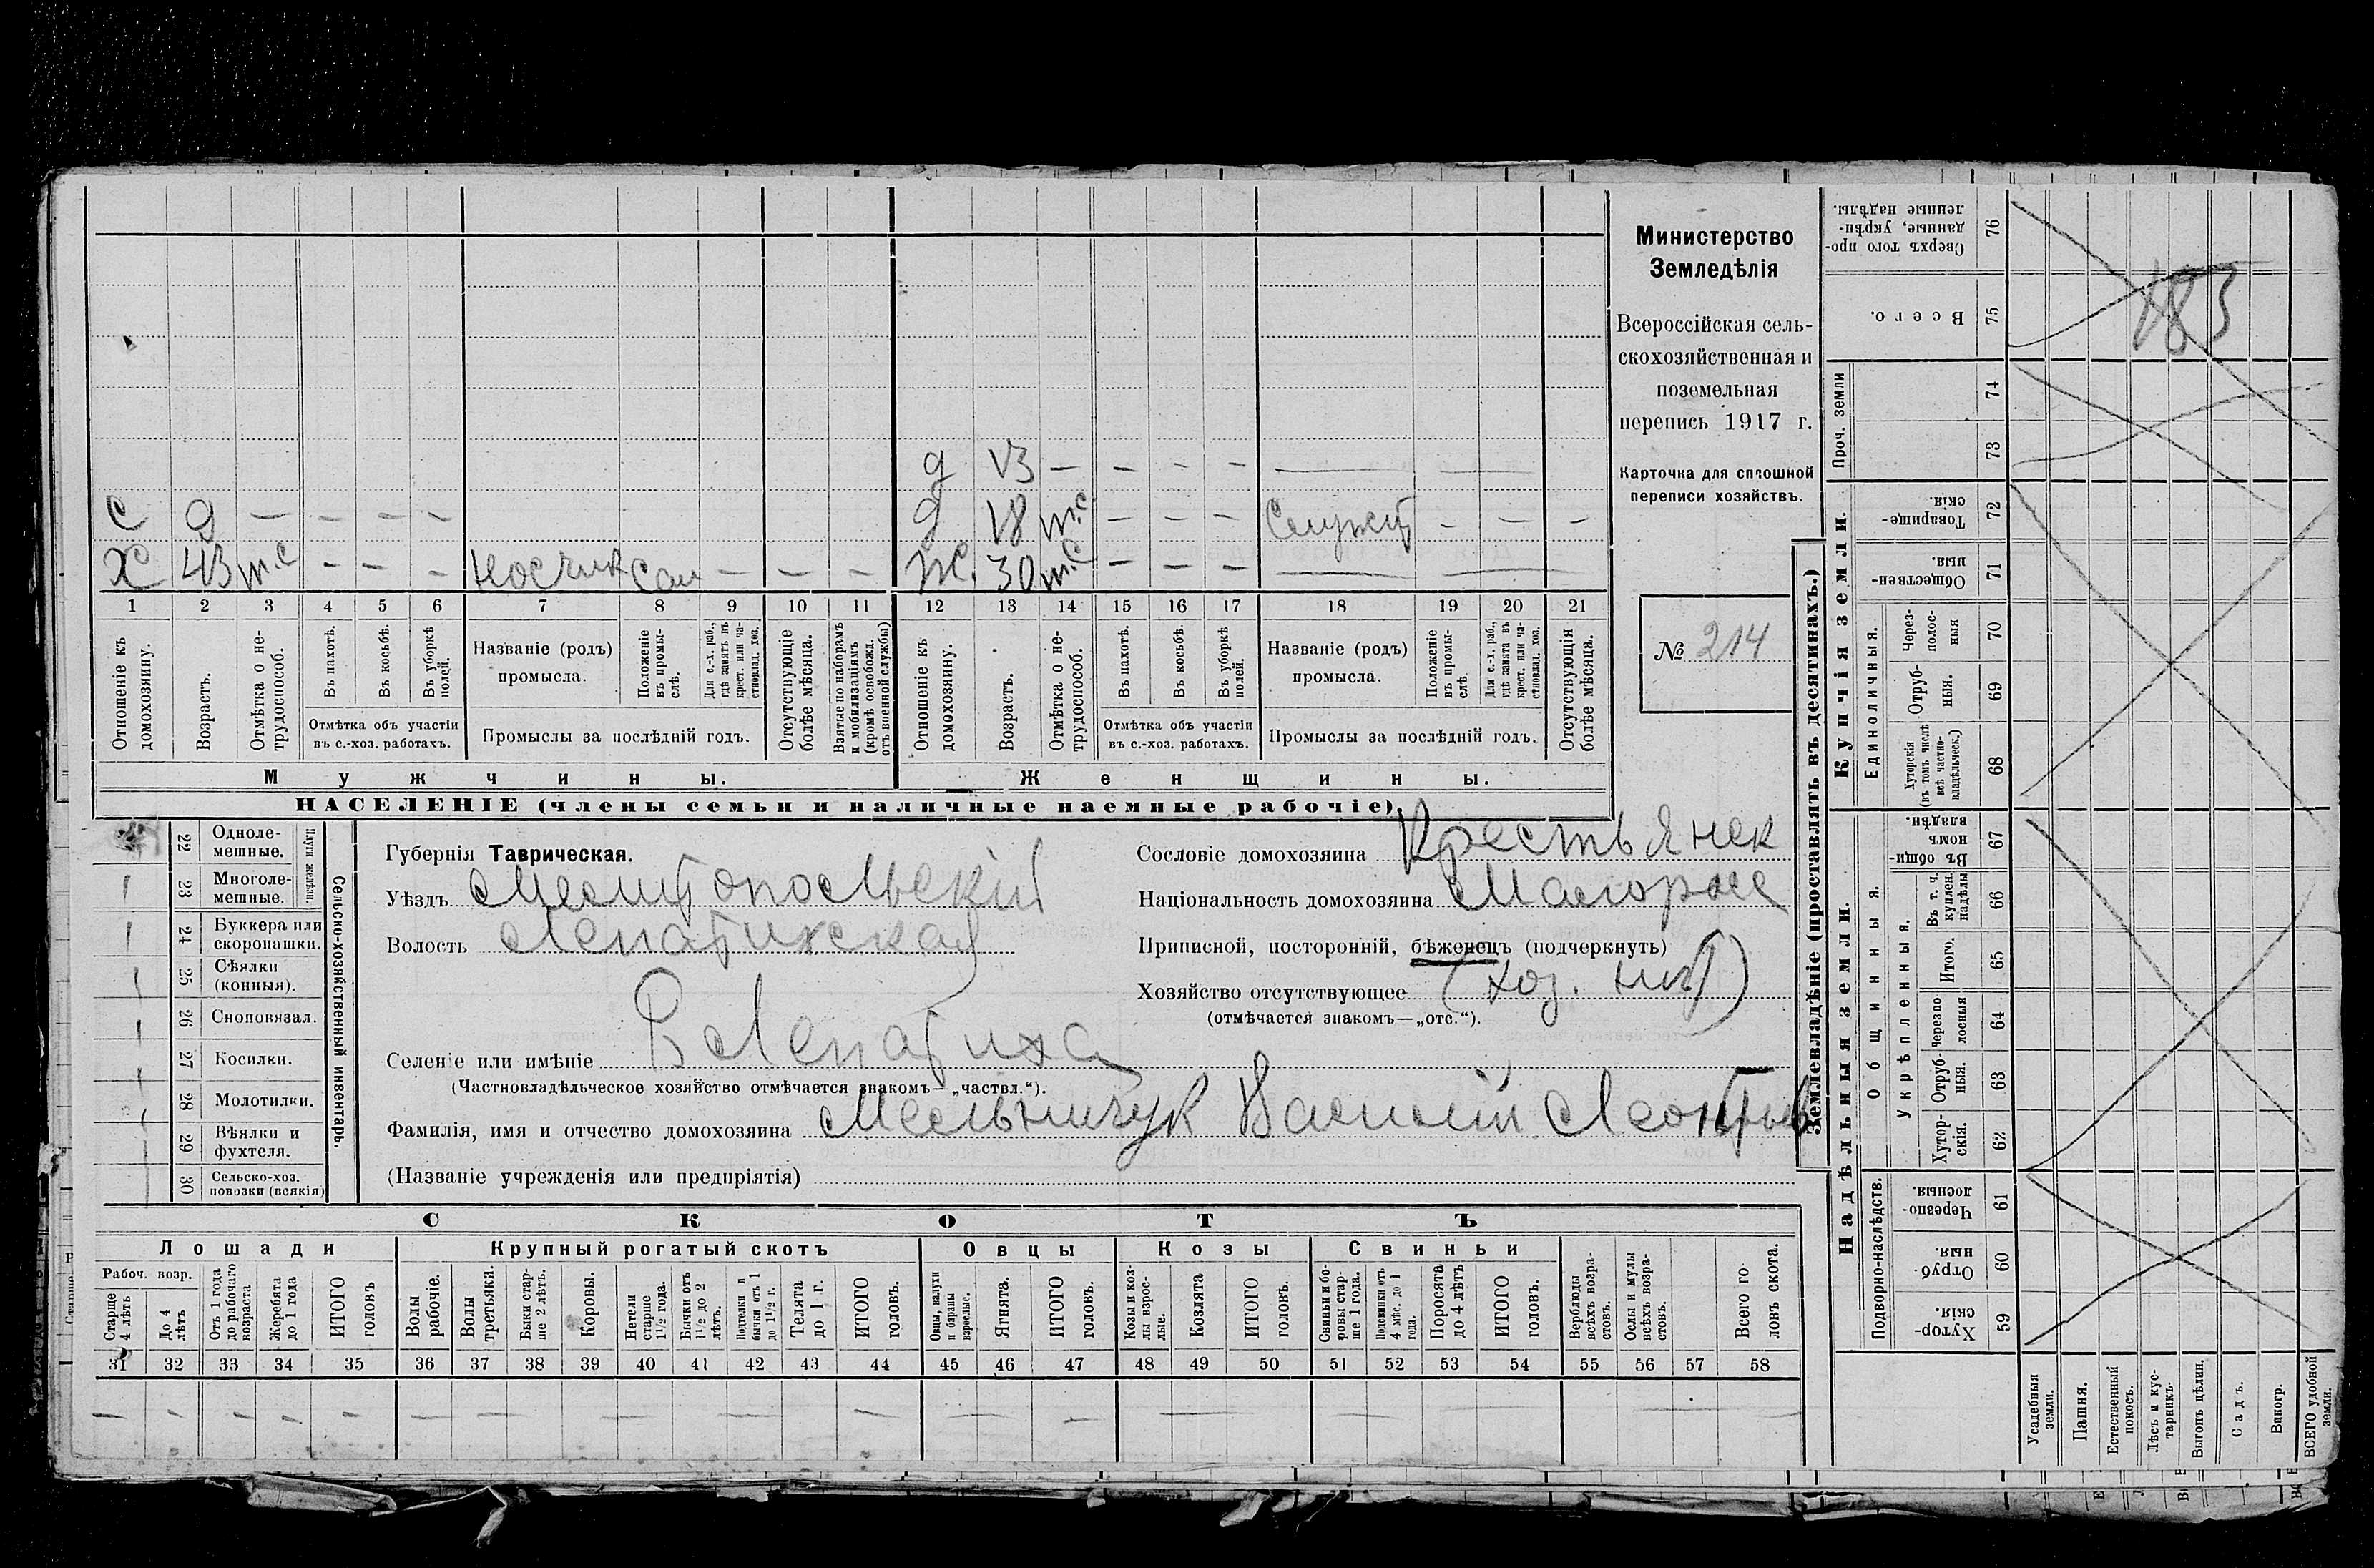 Министерство
Земледѣлія
Всероссійская сель-
скохозяйственная и
поземельная
перепись 1917 г.
Карточка для сплошной
переписи хозяйствъ.
№ 214
д 13 — — — — — —
с 9 — — — — д 18 — — — — — —
х 43 — — — носчик — — — ж. 30 — — — — —
1 2 3 4 5 6 7 8 9 10 11 12 13 14 15 16 17 18 19 20 21
Отношеніе къ домохозяину.
Возрастъ.
Отмѣтка о не-трудоспособ.
Въ пахотѣ.
Въ косьбѣ.
Въ уборкѣ полей.
Отмѣтка объ участіи
въ с.-хоз. работахъ.
Названіе (родъ)
промысла.
Положеніе въ промы-слѣ.
Для с.-х. раб., гдѣ занятъ въ крест. или ча-стновлад. хоз.
Промыслы за послѣдній годъ.
Отсутствующіе болѣе мѣсяца.
Взятые по наборамъ и мобилизаціямъ (кромѣ освобожд. отъ военной службы)
Отношеніе къ домохозяину.
Возрастъ.
Отмѣтка о не-трудоспособ.
Въ пахотѣ.
Въ косьбѣ.
Въ уборкѣ полей.
Отмѣтка объ участіи
въ с.-хоз. работахъ.
Названіе (родъ)
промысла.
Положеніе въ промы-слѣ.
Для с.-х. раб., гдѣ занята въ крест. или ча-стновлад. хоз.
Промыслы за послѣдній годъ.
Отсутствующія болѣе мѣсяца.
Мужчины. Женщины.
НАСЕЛЕНІЕ (члены семьи и наличные наемные рабочіе).
22 Одноле-мешные.
23 Многоле-мешные.
Плуги желѣзн.
24 Буккера или скоропашки.
25 Сѣялки (конныя).
26 Сноповязал.
27 Косилки.
28 Молотилки.
29 Вѣялки и фухтеля.
30 Сельско-хоз. повозки (всякія)
Сельско-хозяйственный инвентарь.
Губернія Таврическая.
Уѣздъ Мелитопольскій
Волость Лепатихская
Селеніе или имѣніе В Лепатиха
(Частновладѣльческое хозяйство отмѣчается знакомъ—„частвл.“).
Фамилія, имя и отчество домохозяина Мельничук Василій Леонтьев
(Названіе учрежденія или предпріятія)
Сословіе домохозяина Крестьянек
Національность домохозяина Малорос
Приписной, посторонній, бѣженецъ (подчеркнуть)
Хозяйство отсутствующее (хоз. нит)
(отмѣчается знакомъ—„отс.“).
СКОТЪ
Лошади Крупный рогатый скотъ Овцы Козы Свиньи
Рабоч. возр.
Старше 4 лѣтъ
До 4 лѣтъ
Отъ 1 года до рабочаго возраста
Жеребята до 1 года
ИТОГО головъ
Волы рабочіе.
Волы третьяки.
Быки стар-ше 2 лѣтъ.
Коровы.
Нетели старше 1½ года.
Бычки отъ 1½ до 2 лѣтъ.
Подтелки и бычки отъ 1 до 1½ г.
Телята до 1 г.
ИТОГО головъ.
Овцы, валухи и бараны взрослые.
Ягнята.
ИТОГО головъ.
Козы и коз-лы взрос-лые.
Козлята
ИТОГО головъ.
Свиньи и бо-ровы стар-ше 1 года.
Подсвинки отъ 4 мѣс. до 1 года.
Поросята до 4 лѣтъ
ИТОГО головъ.
Верблюды всѣхъ возра-стовъ.
Ослы и мулы всѣхъ возра-стовъ.
Всего го-ловъ скота.
31 32 33 34 35 36 37 38 39 40 41 42 43 44 45 46 47 48 49 50 51 52 53 54 55 56 57 58
Землевладѣніе (проставлять въ десятинахъ.)
Купчія земли.
Надѣльныя земли.
183
76 Сверхъ того про-данные, укрѣп-ленные надѣлы.
75 Всего.
Проч. земли
74
73
72 Товарище-скія.
71 Обществен-ныя.
Единоличныя.
70 Через-полос-ныя
69 Отруб-ныя.
68 Хуторскія (въ томъ числѣ всѣ частно-владѣльческ.)
Общинныя.
67 Въ общин-номъ владѣн.
Укрѣпленныя.
66 Въ т. ч. куплен. надѣлы
65 Итого.
64 Черезпо-лосныя
63 Отруб-ныя.
62 Хутор-скія.
Подворно-наслѣдств.
61 Черезпо-лосныя.
60 Отруб-ныя.
59 Хутор-скія.
Усадебныя земли.
Пашня.
Естественный покосъ.
Лѣсъ и кус-тарникъ.
Выгонъ цѣлин.
Садъ.
Виногр.
ВСЕГО удобной земли.